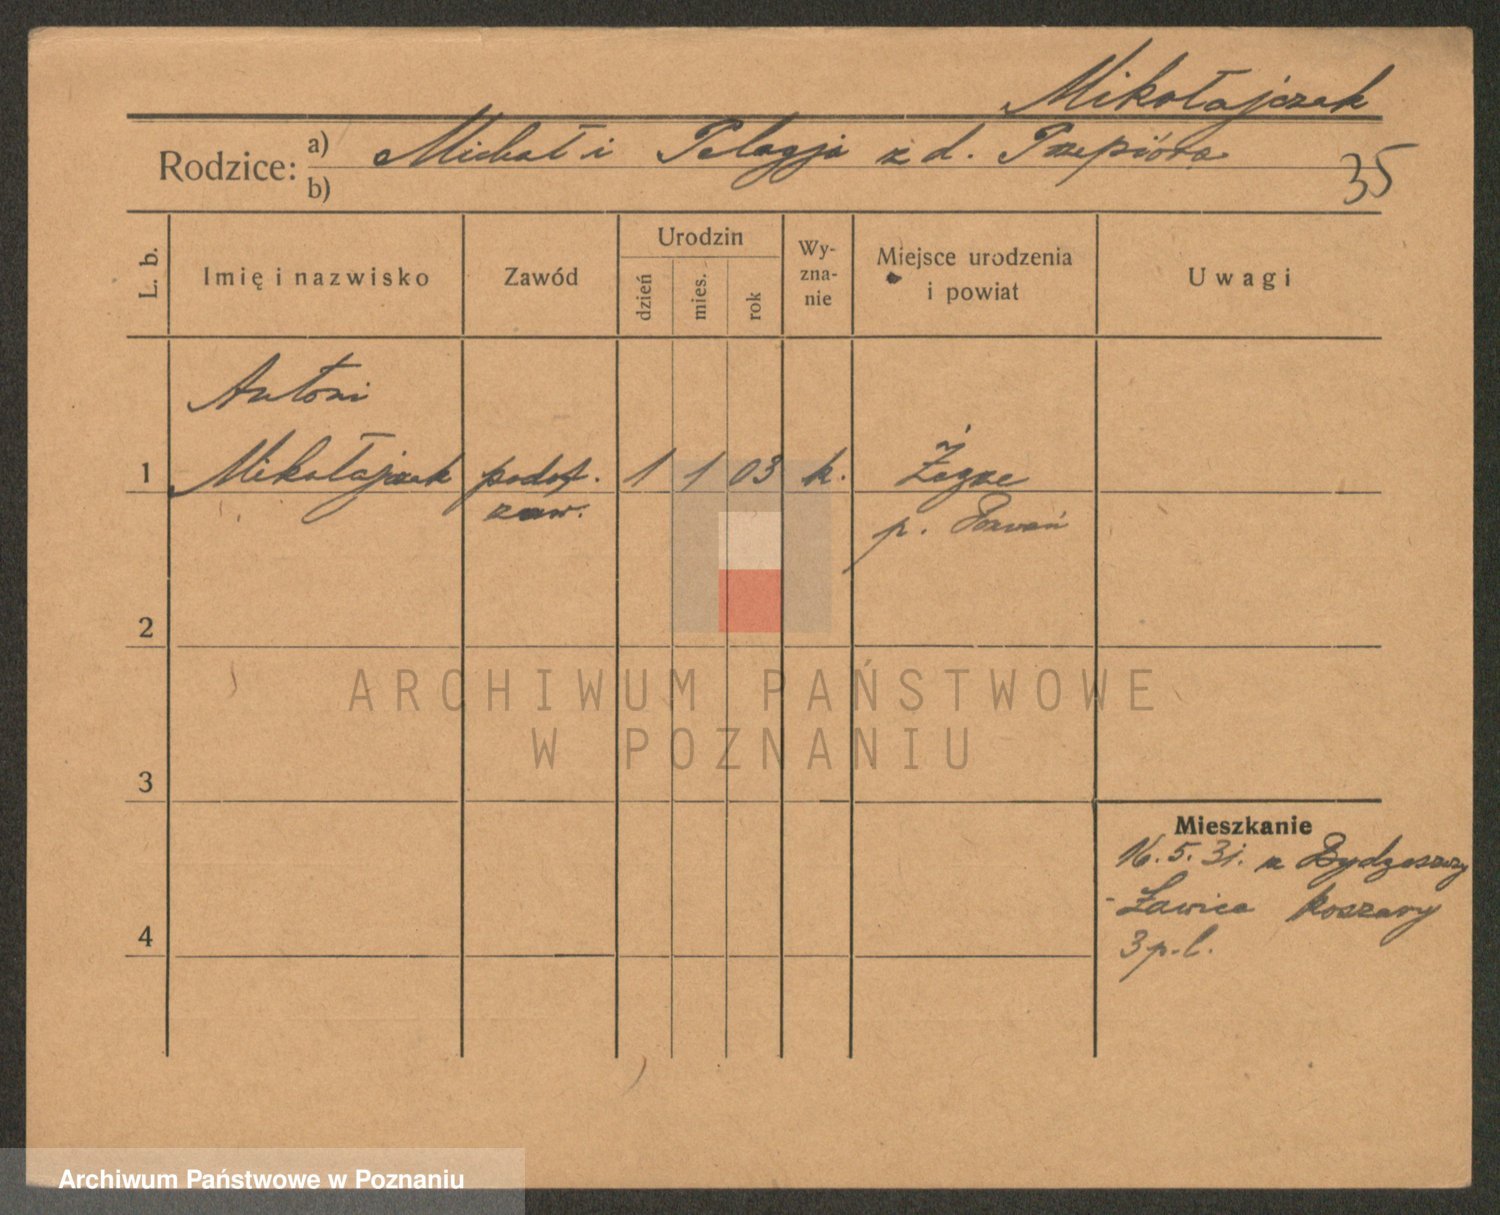 Mikołajczak
Rodzice: a) Michał i Pelagja z d. Przepióra
b)
35
L. b.
Imię i nazwisko
Zawód
Urodzin
dzień
mies.
rok
Wy-
zna-
nie
Miejsce urodzenia
i powiat
Uwagi
Antoni
1 Mikołajczak podof. 1 1 03 k. Żegrze
zaw. p. Poznań
2
3
4
Mieszkanie
16. 5. 31. z Bydgoszczy
- Ławica koszary
3 p. l.
ARCHIWUM PAŃSTWOWE
W POZNANIU
Archiwum Państwowe w Poznaniu